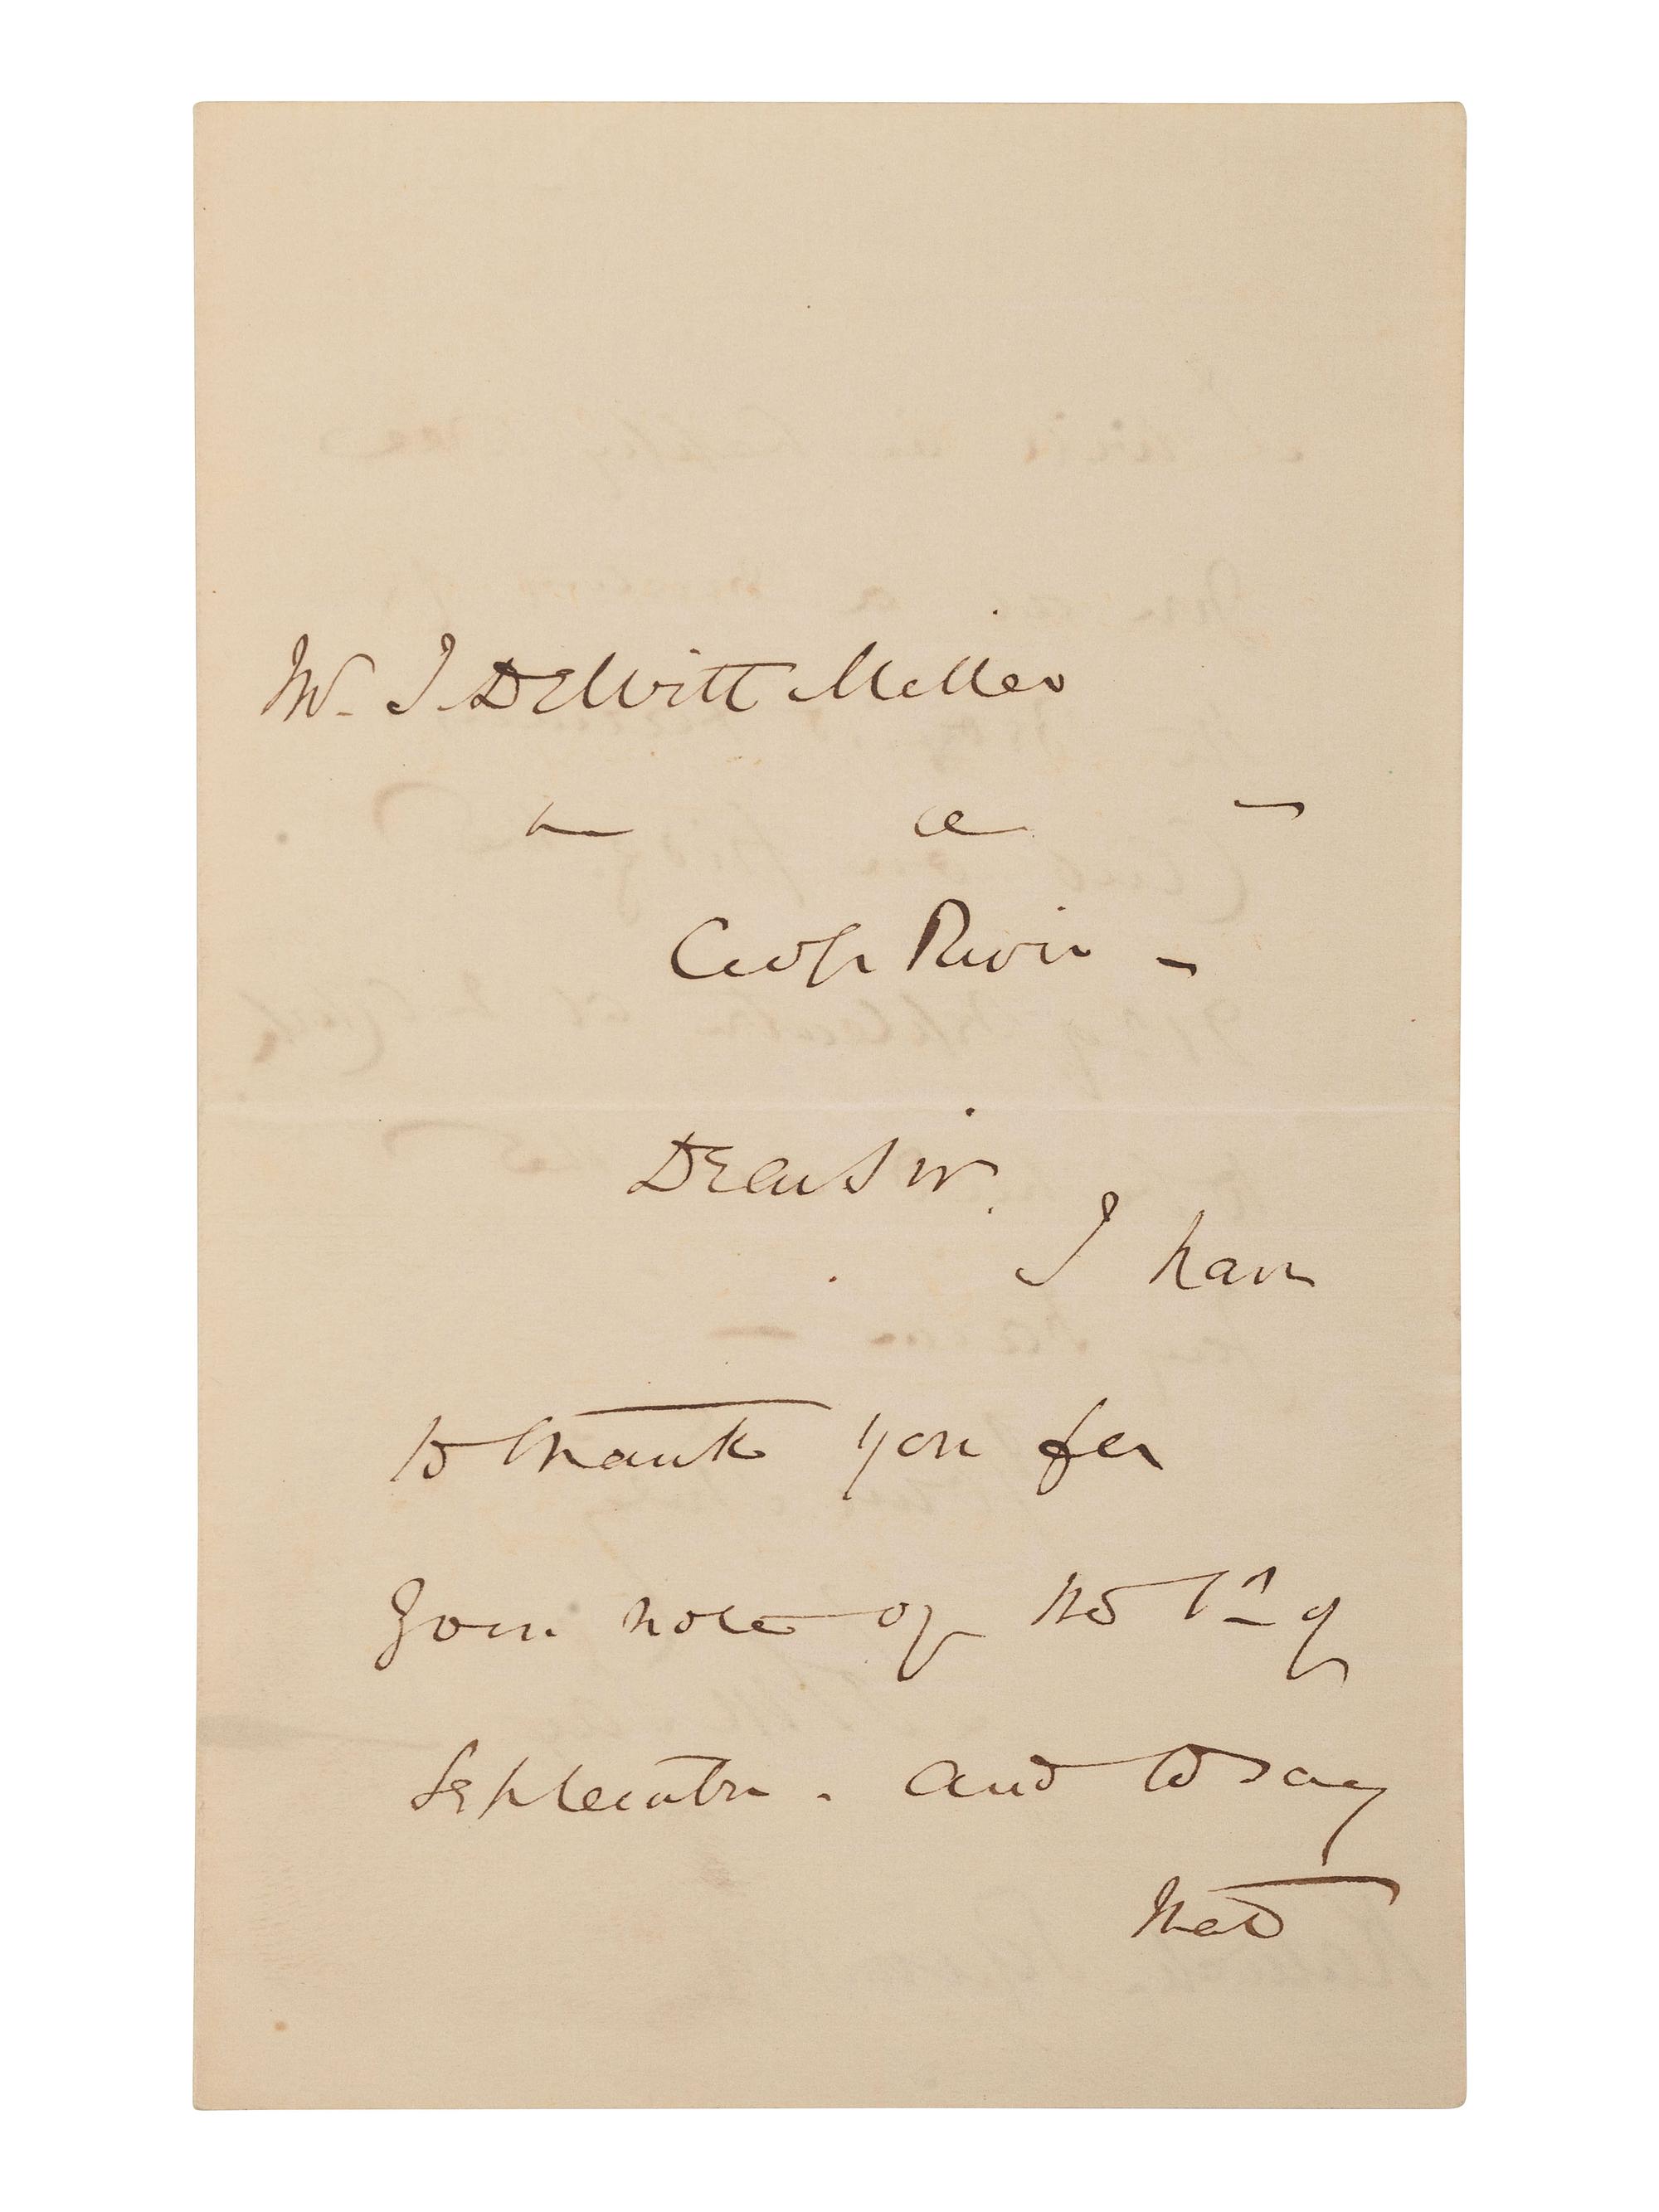 Mr. J. DeWitt Miller
Cross River -
Dear Sir.
I have
to thank you for
your note of the 1st of
September. and to say
that